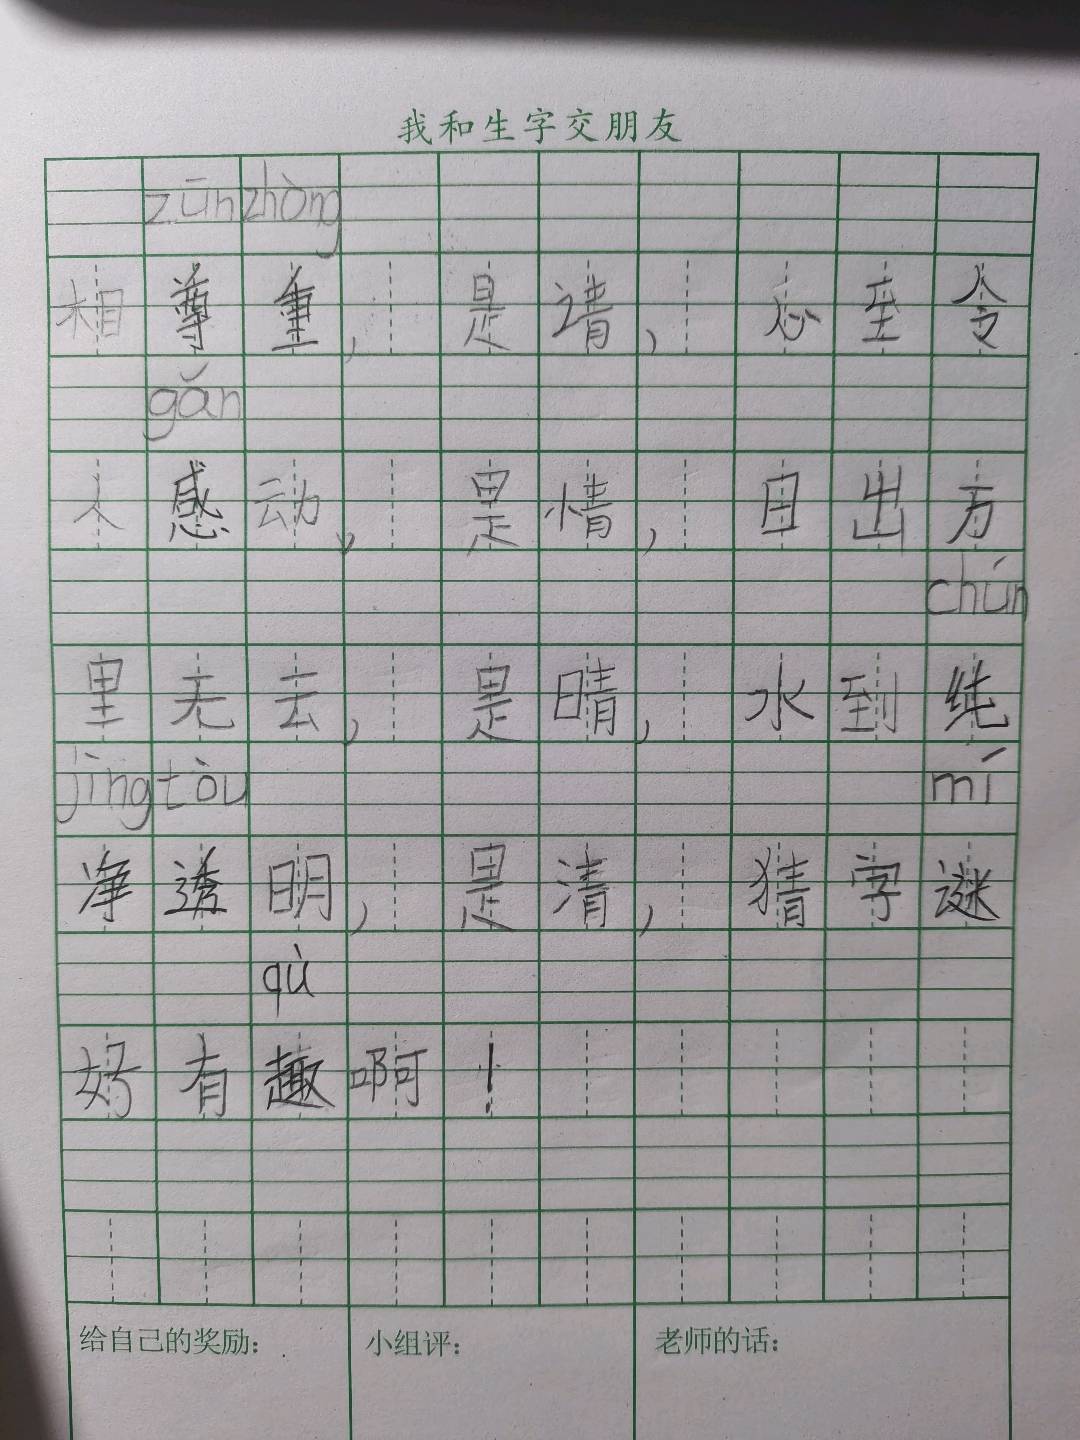 我和生字交朋友
zūn zhòng
相尊重，是请，心至令
gǎn
人感动，是情，日出方
chún
里无去，是晴，水到纯
jìng tòu mí
净透明，是清，猜字谜
qù
好有趣啊！
给自己的奖励： 小组评： 老师的话：